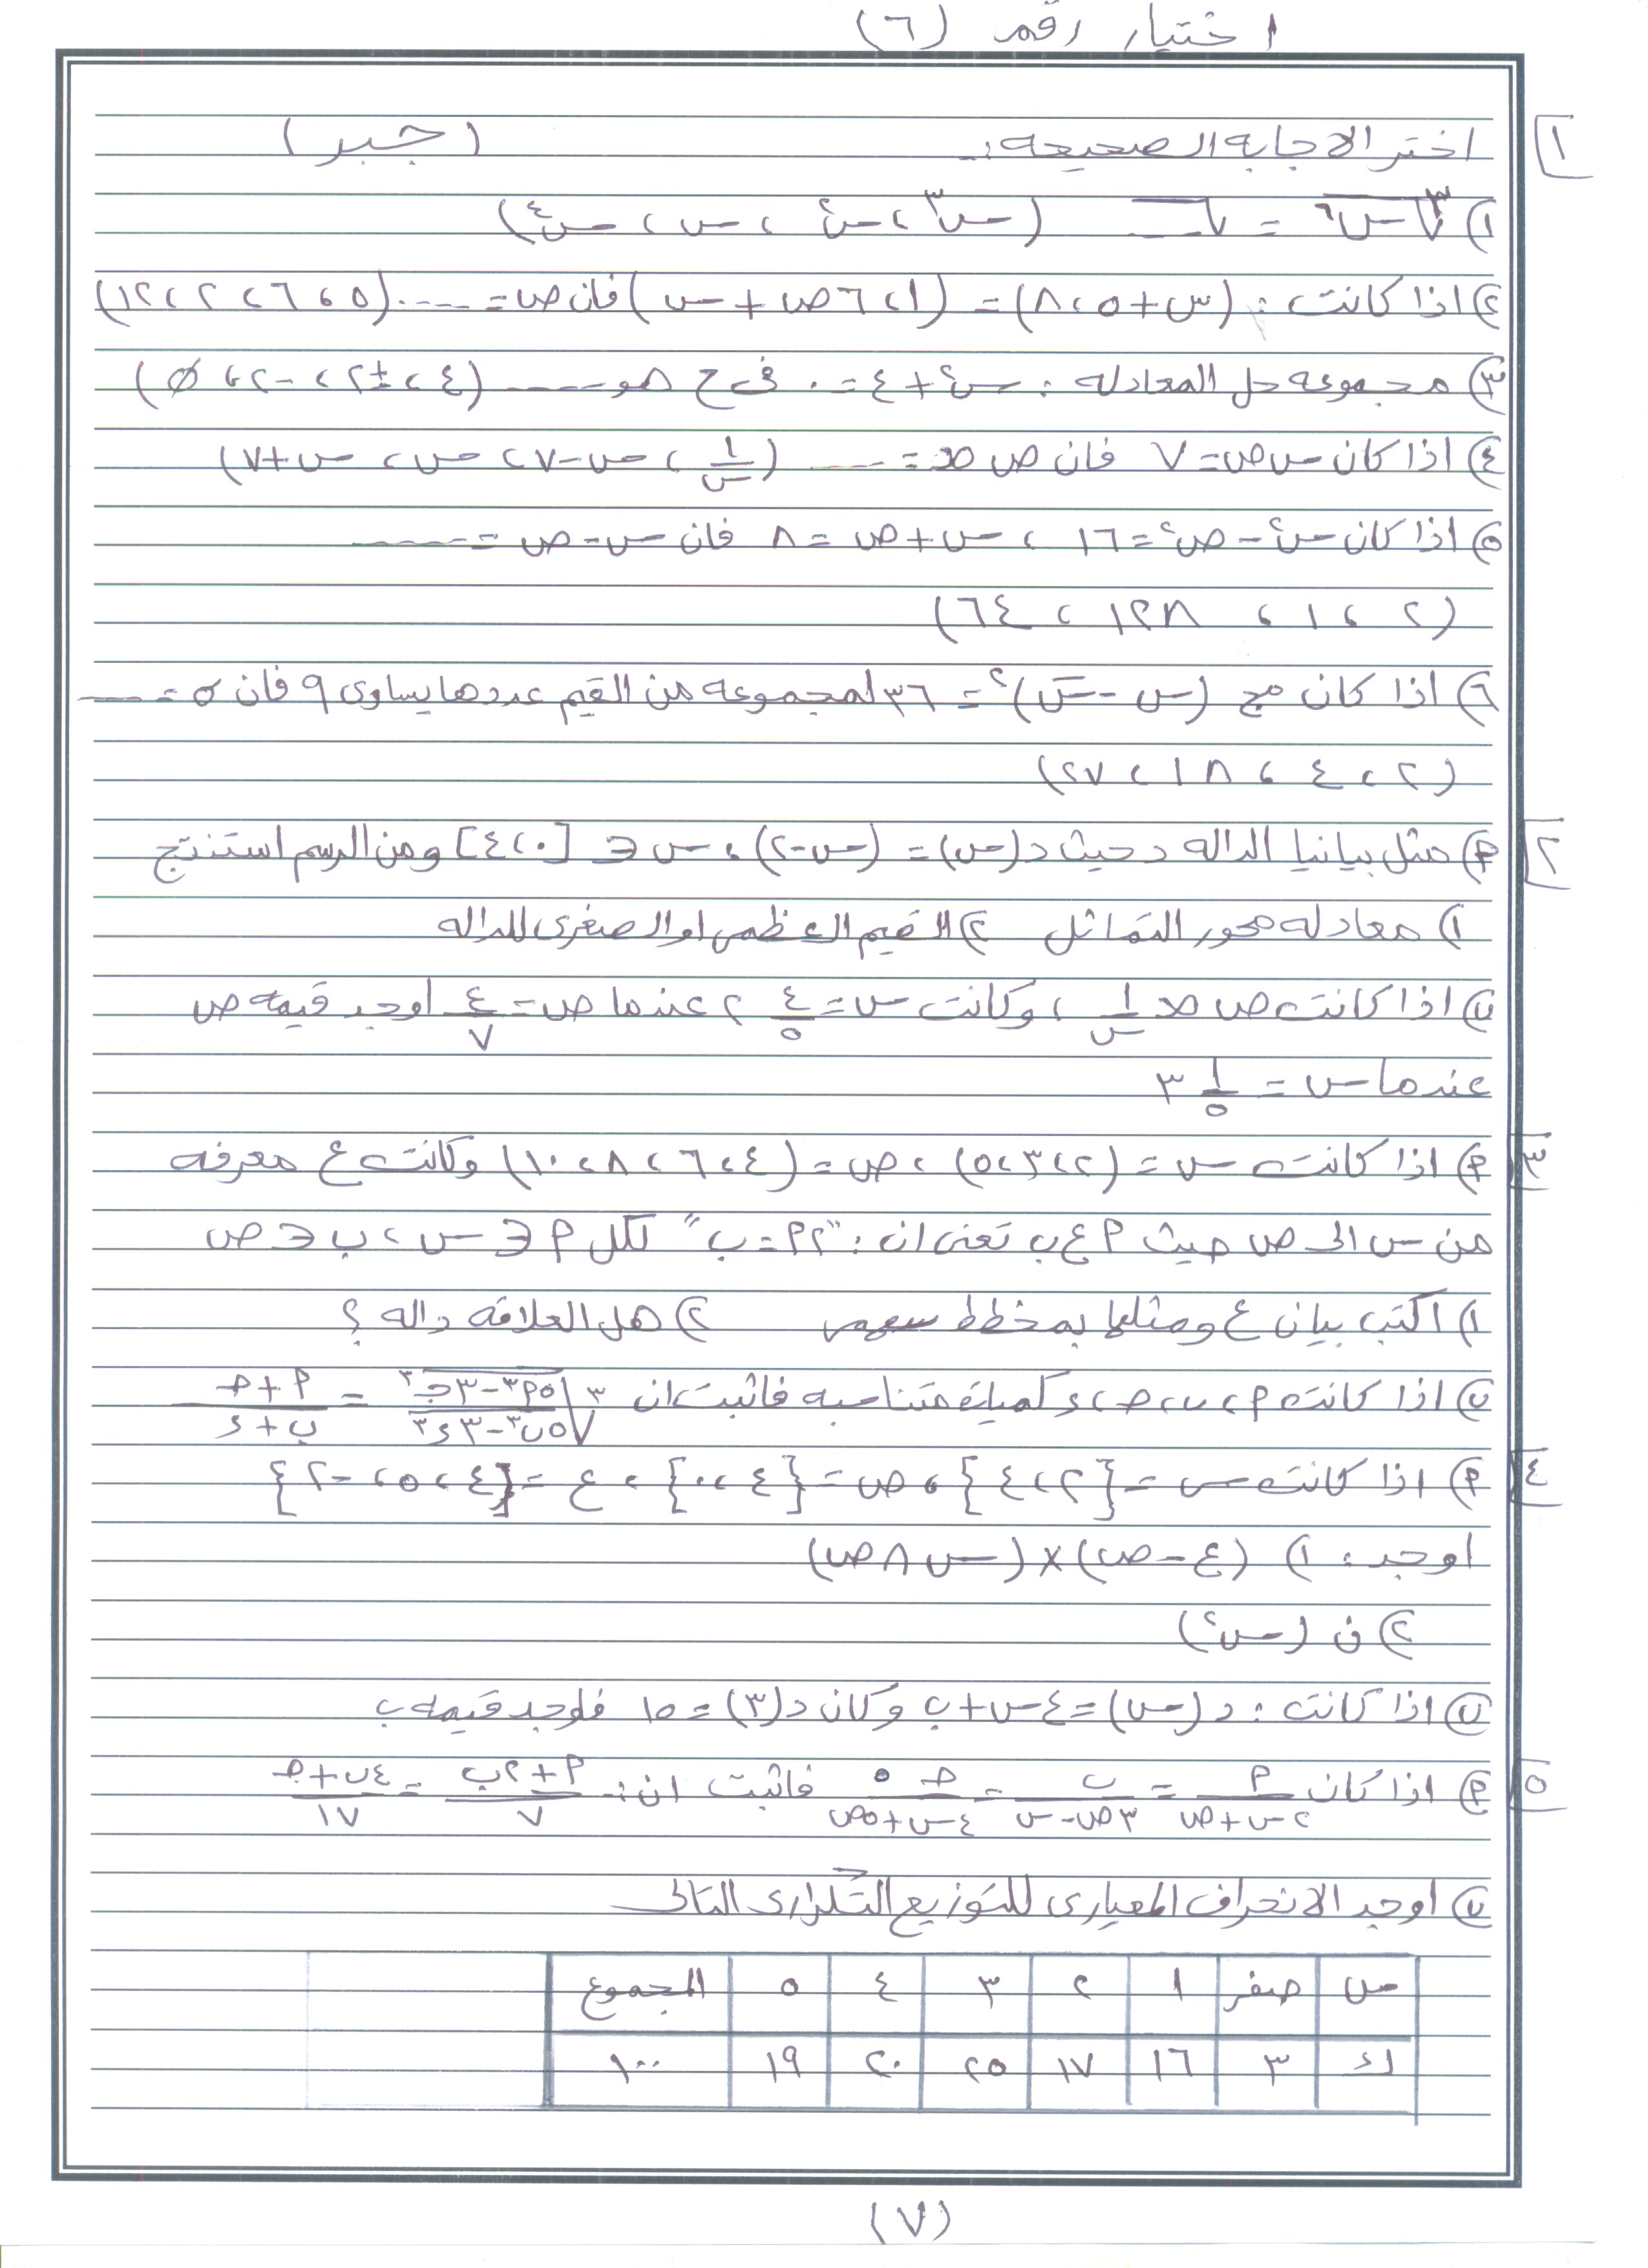 اختبار رقم (٦)
١ اختر الاجابه الصحيحه :- (جبر)
١) ∛س٦ = √.... (س٣ ، س٢ ، س ، س٤)
٢) اذا كانت : (س + ٥ ، ٨) = (١ ، ٦ص + س) فان ص = .... (٥ ، ٦ ، ٢ ، ١٢)
٣) مجموعه حل المعادله : س٢ + ٤ = ٠ فى ح هو .... (٤ ، ±٢ ، -٢ ، Ø)
٤) اذا كان س ص = ٧ فان ص ∝ .... (١/س ، س - ٧ ، س ، س + ٧)
٥) اذا كان س٢ - ص٢ = ١٦ ، س + ص = ٨ فان س - ص = ....
(٢ ، ١ ، ١٢٨ ، ٦٤)
٦) اذا كان مج (س - س̄)٢ = ٣٦ لمجموعه من القيم عددها يساوى ٩ فان σ = ....
(٢ ، ٤ ، ١٨ ، ٢٧)
٢ ٩) مثل بيانيا الداله د حيث د(س) = (س - ٢) ، س ∈ [٠ ، ٤] ومن الرسم استنتج
١) معادله محور التماثل ٢) القيم العظمى او الصغرى للداله
ب) اذا كانت ص ∝ ١/س ، وكانت س = ٤/٥ ٢ عندما ص = ٤/٧ اوجد قيمه ص
عندما س = ١/٥ ٣
٣ ٩) اذا كانت س = (٢ ، ٣ ، ٥) ، ص = (٤ ، ٦ ، ٨ ، ١٠) وكانت ع معرفه
من س الى ص حيث ٩ ع ب تعنى ان : "٢٩ = ب" لكل ٩ ∈ س ، ب ∈ ص
١) اكتب بيان ع ومثلها بمخطط سهمى ٢) هل العلاقه داله ؟
ب) اذا كانت ٩ ، ب ، ج ، د كميات متناسبه فاثبت ان ∛((٥٩٣ - ٣ج٣)/(٥ب٣ - ٣د٣)) = (٩ + ج)/(ب + د)
٤ ٩) اذا كانت س = {٢ ، ٤} ، ص = {٤ ، ٠} ، ع = {٤ ، ٥ ، -٢}
اوجد : ١) (ع - ص) × (س ∩ ص)
٢) ن (س٢)
ب) اذا كانت : د(س) = ٤س + ب وكان د(٣) = ١٥ فاوجد قيمه ب
٥ ٩) اذا كان ٩/(٢س + ص) = ب/(٣ص - س) = ج/(٤س + ٥ص) فاثبت ان :- (٩ + ٢ب)/٧ = (٤ب + ج)/١٧
ب) اوجد الانحراف المعيارى للتوزيع التكرارى التالى
س صفر ١ ٢ ٣ ٤ ٥ المجموع
ك ٣ ١٦ ١٧ ٢٥ ٢٠ ١٩ ١٠٠
(٧)